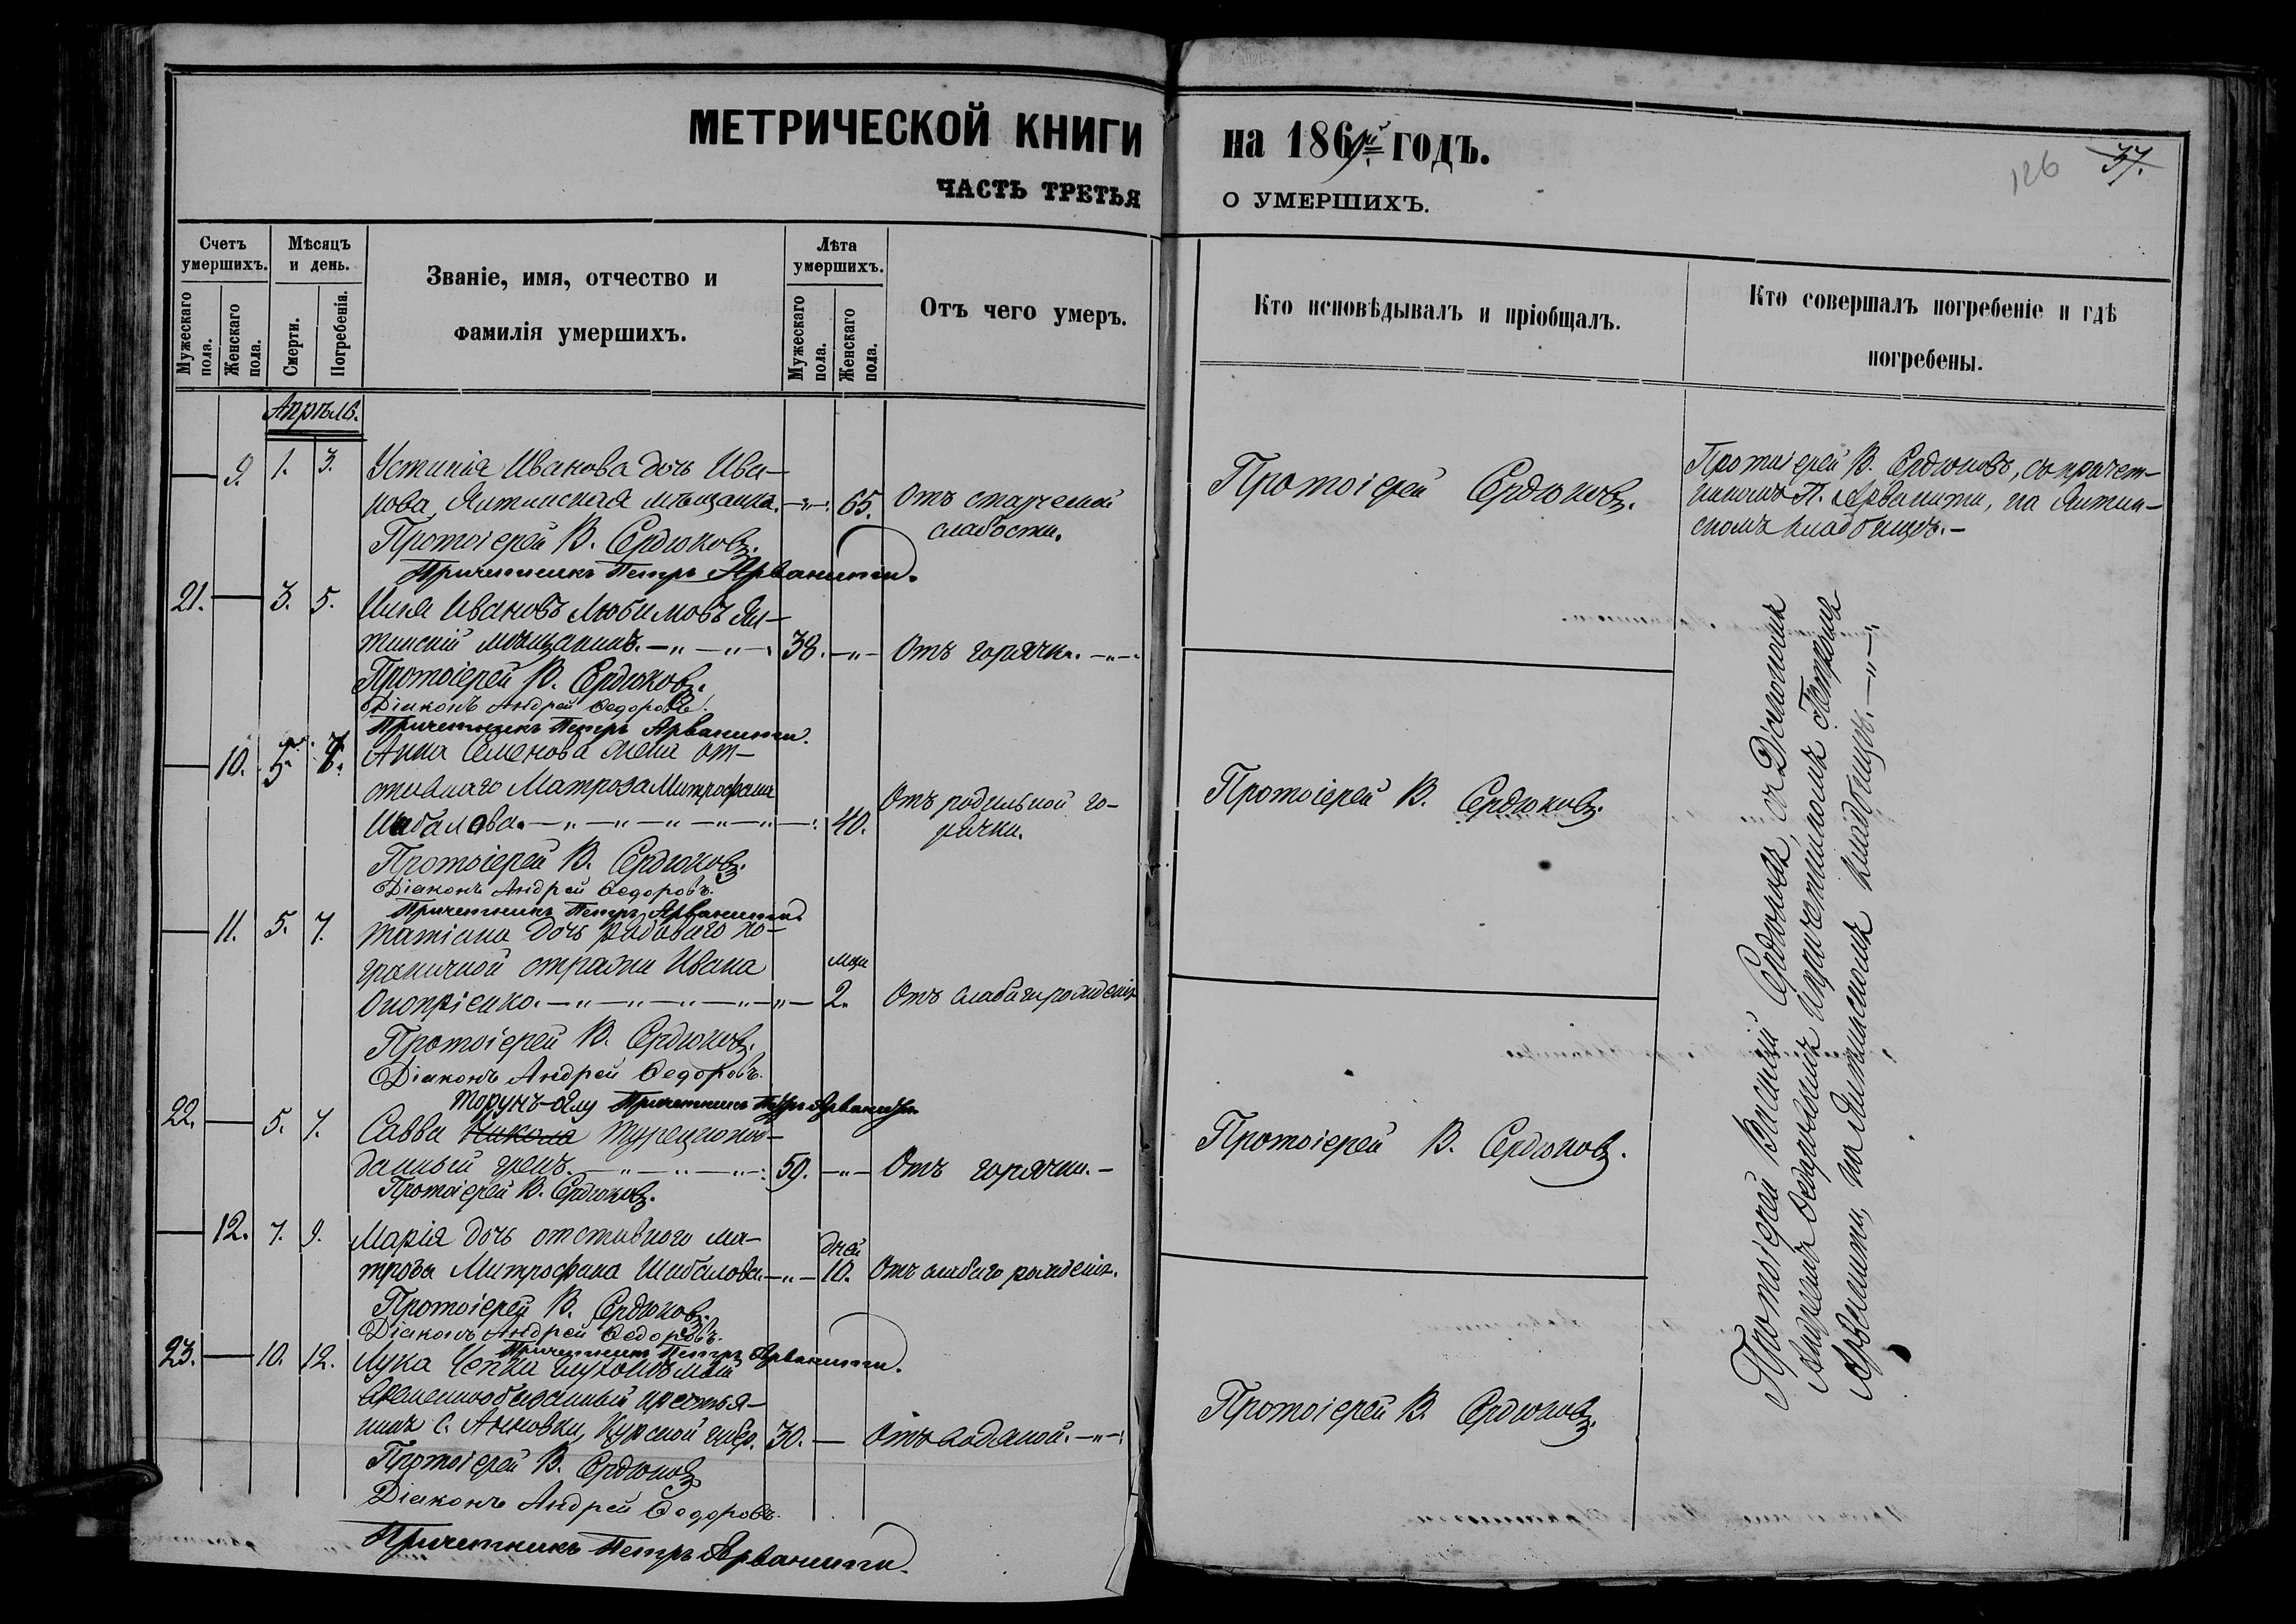 МЕТРИЧЕСКОЙ КНИГИ
ЧАСТЬ ТРЕТЬЯ
Счетъ умершихъ.
Мужескаго пола.
Женскаго пола.
Мѣсяцъ и день.
Смерти.
Погребенія.
Званіе, имя, отчество и
фамилія умершихъ.
Лѣта умершихъ.
Мужескаго пола.
Женскаго пола.
Отъ чего умеръ.
Апрѣль.
— 9. 1. 3. Устинія Иванова дочь Ива-
нова, Ялтинская мѣщанка. —"—: 65. Отъ старческой
слабости.
Протоіерей В. Сердюковъ.
Причетникъ Петръ Арванити.
21. — 3. 5. Илія Ивановъ Любимовъ Ял-
тинскій мѣщанинъ. —"—"—: 38. —"— Отъ горячки. —"—:
Протоіерей В. Сердюковъ.
Діаконъ Андрей Ѳедоровъ.
Причетникъ Петръ Арванити.
— 10. 5. 7. Анна Семенова жена от-
ставнаго Матроза Митрофана
Шабалова. —"—"—"—"—"—: 40. Отъ родильной го-
рячки.
Протоіерей В. Сердюковъ.
Діаконъ Андрей Ѳедоровъ.
Причетникъ Петръ Арванити.
— 11. 5. 7. Татіана дочь рядоваго по-
граничной стражи Ивана
мѣс.
Онопріенко. —"—"—"—"—"— 2. Отъ слабаго рожденія
Протоіерей В. Сердюковъ.
Діаконъ Андрей Ѳедоровъ.
Торунъ-Оглу Причетникъ Петръ Арванити.
22. — 5. 7. Савва Никола Турецкопод-
данный грекъ. —"—"—"—: 59. —"— Отъ горячки. —
Протоіерей В. Сердюковъ.
— 12. 7. 9. Марія дочь отставного ма-
дней
троза Митрофана Шабалова —"— 10. Отъ слабаго рожденія.
Протоіерей В. Сердюковъ.
Діаконъ Андрей Ѳедоровъ.
Причетникъ Петръ Арванити.
23. — 10. 12. Лука Чепка глухонѣмый
временнообязанный крестья-
нинъ с. Анновки, Курской губ. 30. — Отъ водяной. —"—:
Протоіерей В. Сердюковъ
Діаконъ Андрей Ѳедоровъ.
Причетникъ Петръ Арванити.
на 1869й годъ.
О УМЕРШИХЪ.
126 37.
Кто исповѣдывалъ и пріобщалъ.
Кто совершалъ погребеніе и гдѣ
погребены.
Протоіерей Сердюковъ.
Протоіерей В. Сердюковъ, съ причет-
никомъ П. Арванити, на Ялтин-
скомъ кладбищѣ. —
Протоіерей В. Сердюковъ.
Протоіерей В. Сердюковъ.
Протоіерей В. Сердюковъ.
Протоіерей Василій Сердюковъ, съ Діакономъ
Андреемъ Ѳедоровымъ и причетникомъ Петромъ
Арванити, на Ялтинскомъ кладбищѣ. —"—"—: